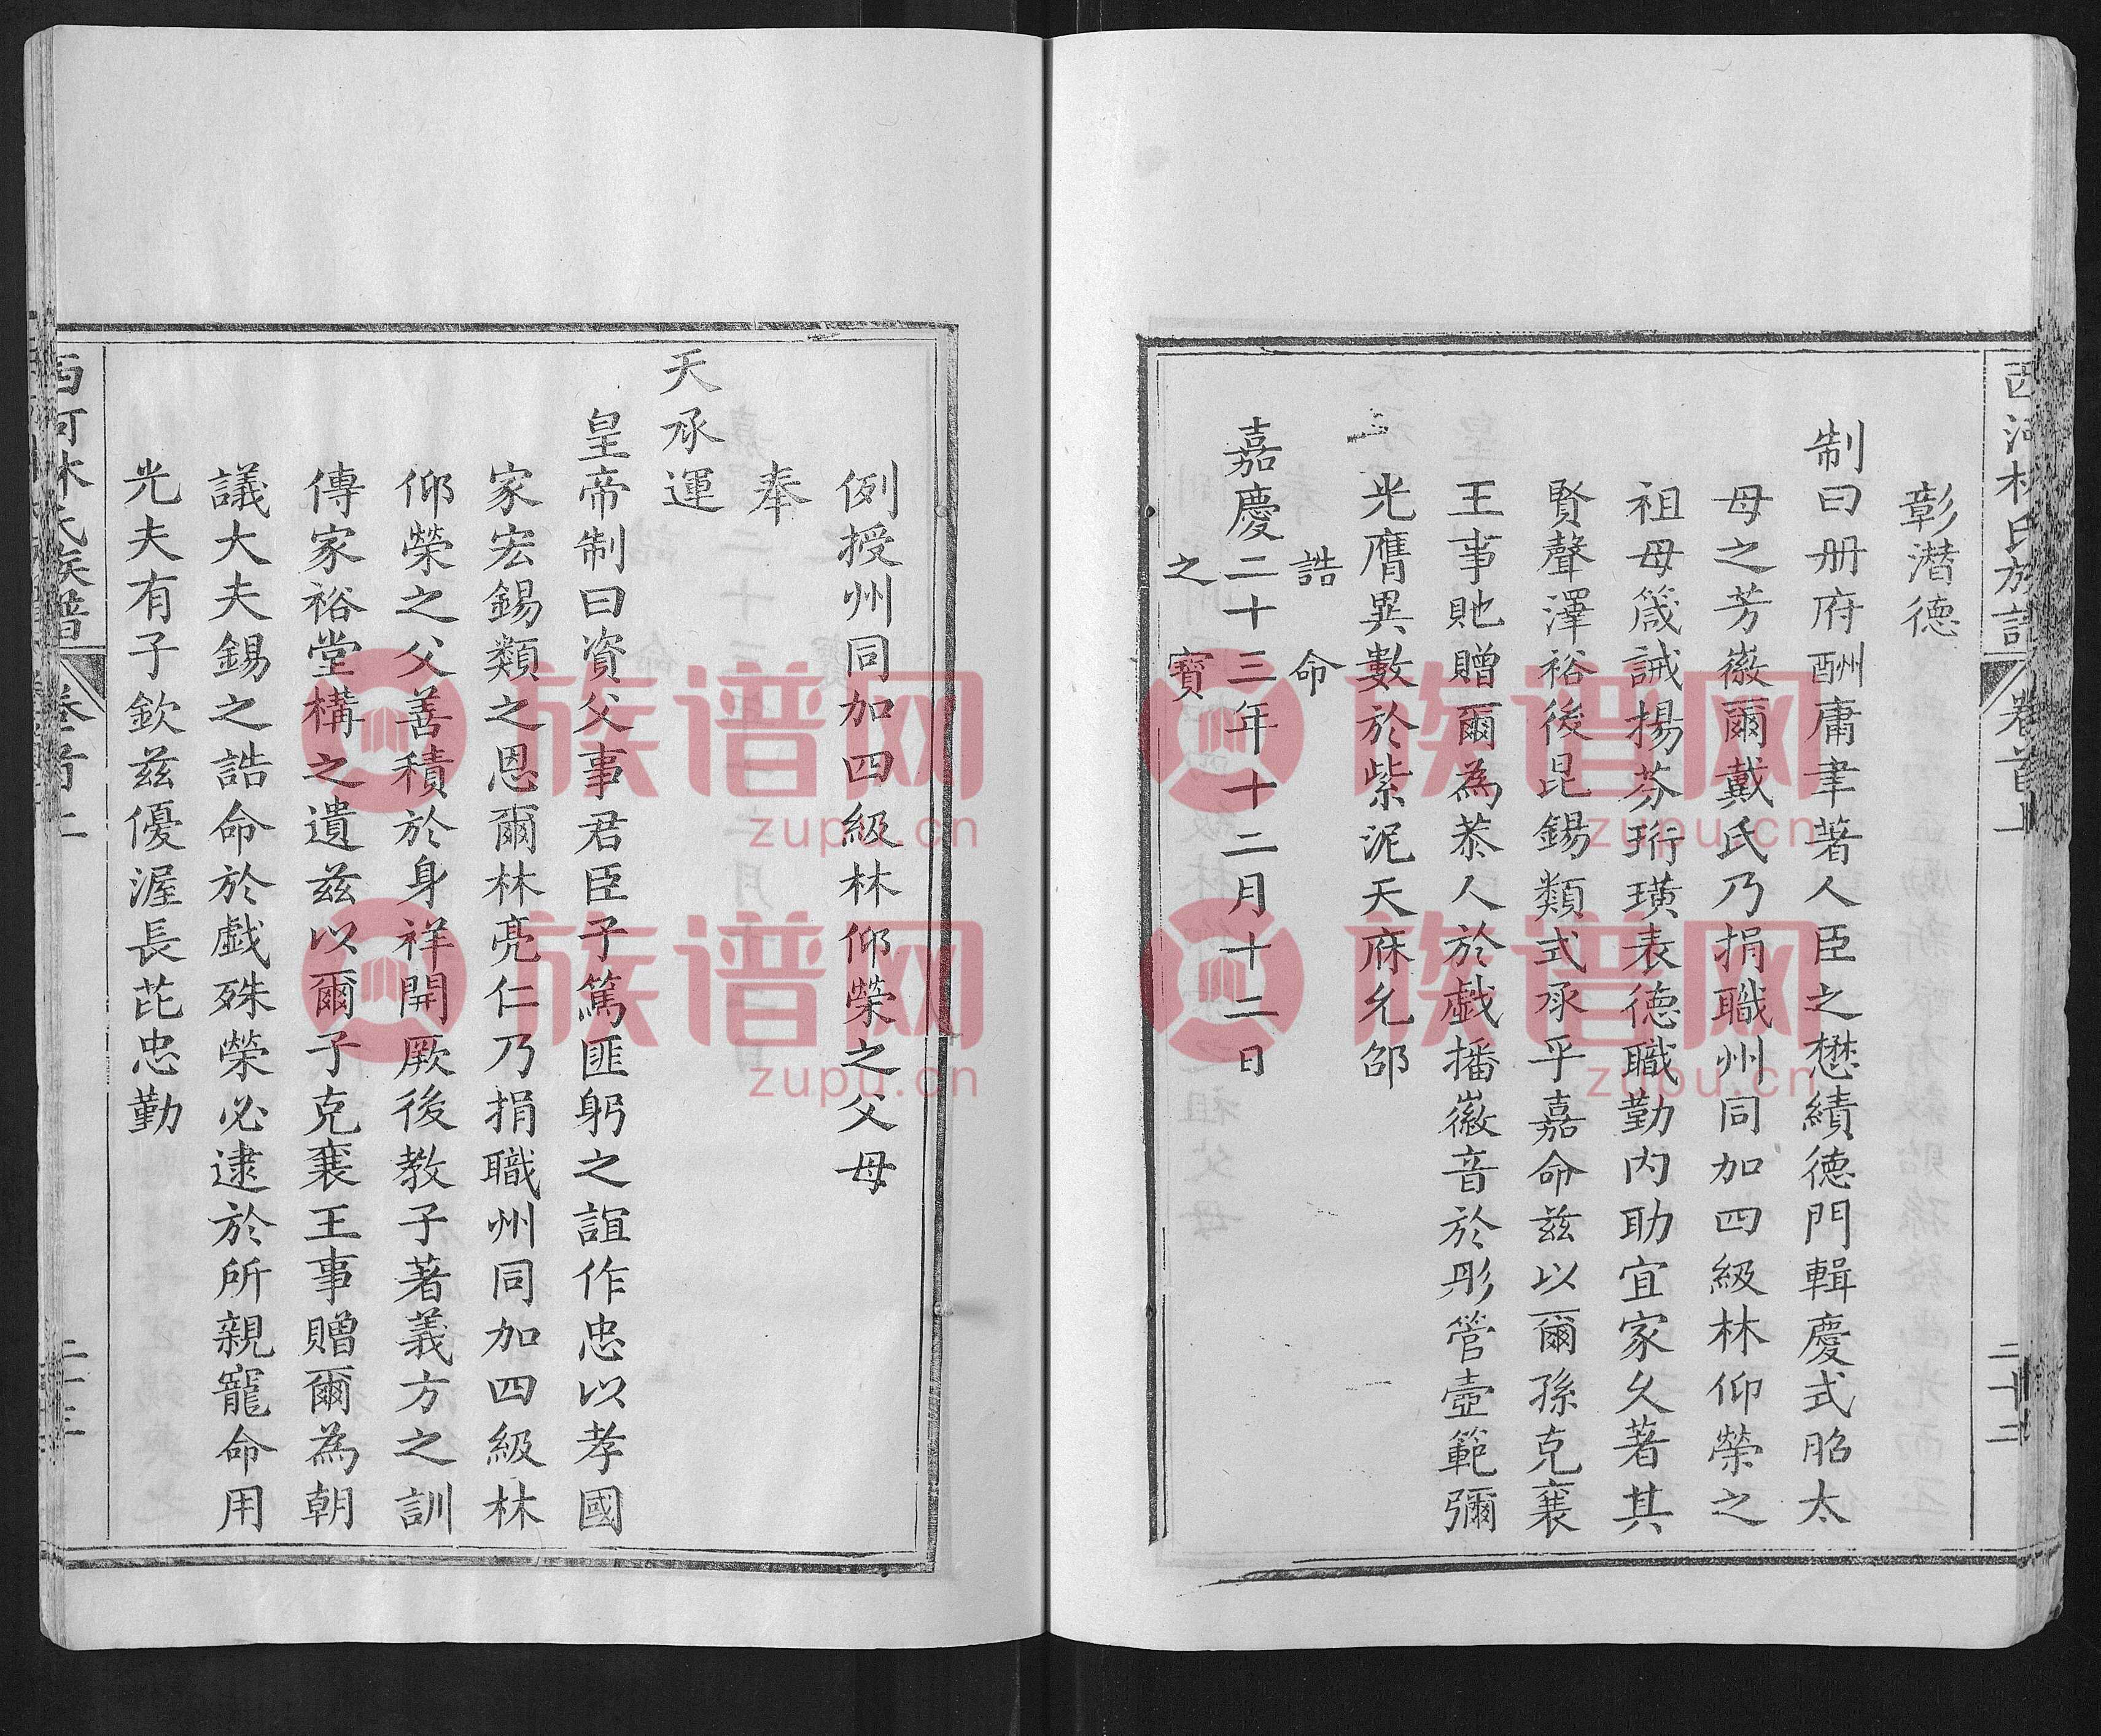 西河林氏族譜 卷首上 二十二
彰潛德
制曰册府酬庸聿著人臣之懋績德門輯慶式昭太
母之芳徽爾戴氏乃捐職州同加四級林仰榮之
祖母箴誡揚芬珩璜表德職勤内助宜家久著其
賢聲澤裕後昆錫類式承乎嘉命兹以爾孫克襄
王事貤贈爾為恭人於戲播徽音於彤管壼範彌
光膺異數於紫泥天庥允邵
誥命
嘉慶二十三年十二月十二日
之寶
例授州同加四級林仰榮之父母
奉
天承運
皇帝制曰資父事君臣子篤匪躬之誼作忠以孝國
家宏錫類之恩爾林亮仁乃捐職州同加四級林
仰榮之父善積於身祥開厥後教子著義方之訓
傳家裕堂構之遺兹以爾子克襄王事贈爾為朝
議大夫錫之誥命於戲殊榮必逮於所親寵命用
光夫有子欽兹優渥長芘忠勤
西河林氏族譜 卷首上 二十三
族谱网
zupu.cn
族谱网
zupu.cn
族谱网
zupu.cn
族谱网
zupu.cn